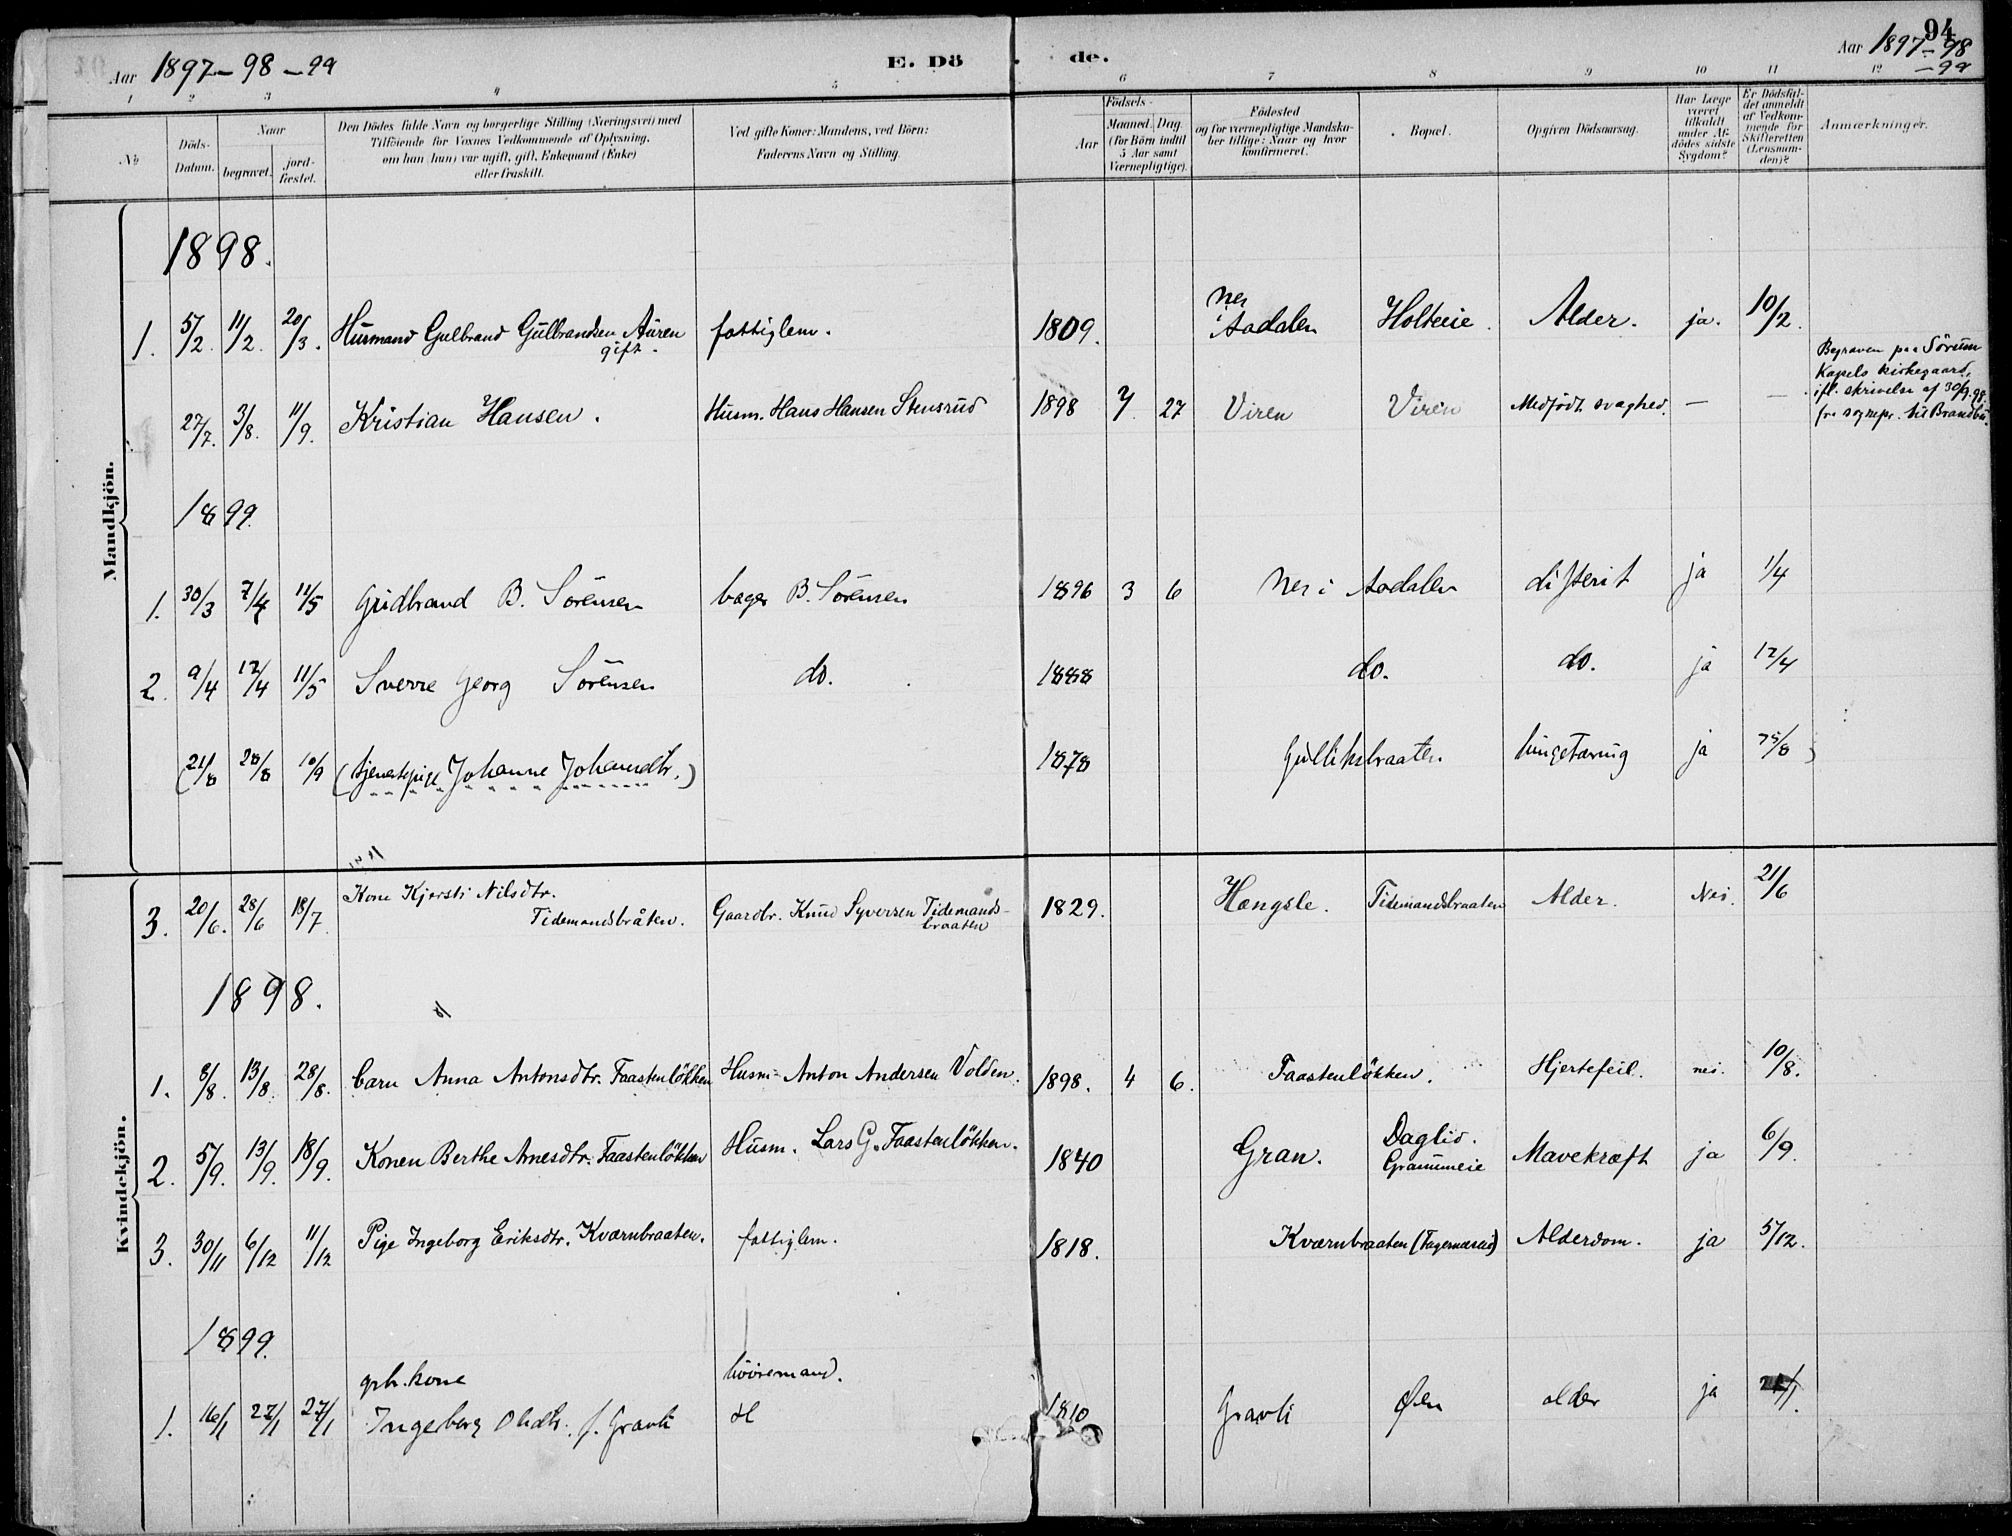 Aar 1897 - 98 - 99
E. Dö de.
94
Aar 1897 - 98 - 99
1 2 3 4 5 6 7 8 9 10 11 12
No
Döds-Datum.
Naar
begravet.
jord-fæstet.
Den Dödes fulde Navn og borgerlige Stilling (Næringsvei) med
Tilföiende for Voxnes Vedkommende af Oplysning,
om han (hun) var ugift, gift, Enkemand (Enke)
eller fraskilt.
Ved gifte Koner: Mandens, ved Börn:
Faderens Navn og Stilling.
Födsels-
Aar
Maaned. Dag.
(for Börn indtil
5 Aar samt
Værnepligtige).
Födested
og for værnepligtige Mandska-
ber tillige: Naar og hvor
konfirmeret.
Bopæl.
Opgiven Dödsaarsag.
Har Læge
været
tilkaldt
under Af-
dödes sidste
Sygdom?
Er Dödsfal-
det anmeldt
af Vedkom-
mende for
Skifteretten
(Lensman-
den)?
Anmærkninger.
Mandkjön.
1898.
1. 5/2. 11/2. 20/3. Husmand Gulbrand Gulbrandsen Auren gift. fattiglem. 1809. Nes i Aadalen Holteeie. Alder. ja. 10/2.
27/7. 3/8. 11/9. Kristian Hansen. Husm. Hans Hansen Stensrud 1898 7 27 Viren Viren Medfödt svaghed. — —
Begraven paa Sörum
Kapels kirkegaard,
ifl. skrivelse af 30/9 98.
fra sognepr. til Brandbu.
1899.
1. 30/3 7/4 11/5 Gudbrand B. Sörensen bager B. Sörensen 1896 3 6 Nes i Aadalen difterit ja 1/4
2. 9/4 12/4 11/5 Sverre Georg Sörensen do. 1888 do. do. ja 12/4
(21/8 28/8 10/9 (tjenestepige Johanne Johannesdtr.) 1878 Gulliksbraaten. lungetæring ja 25/8)
Kvindekjön.
3. 20/6. 28/6 18/7 Kone Kjersti Nilsdtr.
Tidemandsbråten. Gaardbr. Knud Syversen Tidemands-
braaten 1829. Hængsle. Tidemandsbraaten Alder. Nei. 21/6
1898.
1. 8/8. 13/8. 28/8. barn Anna Antonsdtr. Faastenlökken Husm. Anton Andersen Volden. 1898. 4 6. Faastenlökken. Hjertefeil. nei. 10/8.
2. 5/9. 13/9. 18/9. Konen Berthe Arnesdtr. Faastenlökken Husm. Lars G. Faastenlökken. 1840 Gran. Daglid.
Grammeie Mavekræft ja 6/9.
3. 30/11 6/12 11/12 Pige Ingeborg Eriksdtr. Kværnbraaten. fattiglem. 1818. Kværnbraaten Alderdom. ja 5/12.
1899.
grb. kone
1. 16/1 22/1 27/1 Ingeborg f. Gravli 1810 Gravli Øen alder ja